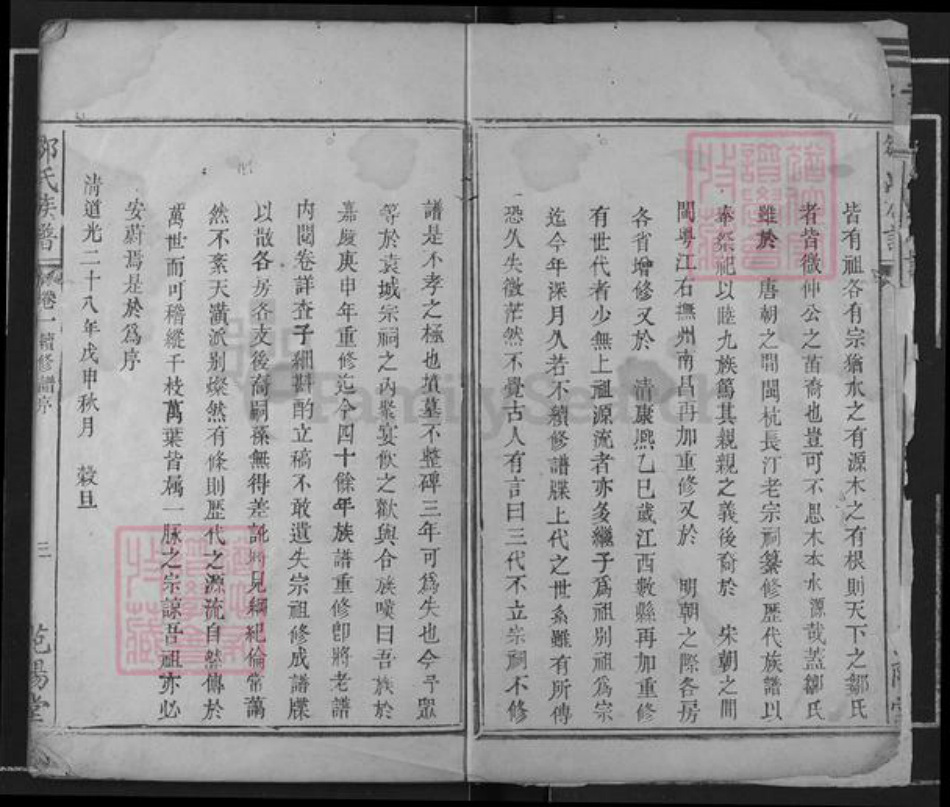 皆有祖各有宗猶水之有源木之有根則天下之鄒氏
者皆徵仲公之苗裔也豈可不思木本水源哉蓋鄒氏
雖於 唐朝之間閩杭長汀老宗祠纂修歷代族譜以
奉祭祀以睦九族篤其親親之義後裔於 宋朝之間
閩粵江右撫州南昌再加重修又於 明朝之際各房
各省增修又於 清康熙乙巳歲江西數縣再加重修
有世代者少無上祖源流者亦多繼子爲祖別祖爲宗
迄今年深月久若不續修譜牒上代之世系雖有所傳
恐久失徵茫然不覺古人有言曰三代不立宗祠不修
譜是不孝之極也墳墓不整碑三年可爲失也今予眾
等於袁城宗祠之內聚宴飲之歡與合族嘆曰吾族於
嘉慶庚申年重修迄今四十餘年族譜重修卽將老譜
內閱卷詳查子細斟酌立稿不敢遺失宗祖修成譜牒
以散各房各支後裔嗣孫無得差訛將見綱紀倫常萬
然不紊天潢派別燦然有條則歷代之源流自然傳於
萬世而可稽縱千枝萬葉皆属一脉之宗諒吾祖亦必
安蔚焉是於爲序
清道光二十八年戊申秋月 穀旦
鄒氏族譜 卷一 續修譜序 三 范陽堂
FamilySearch